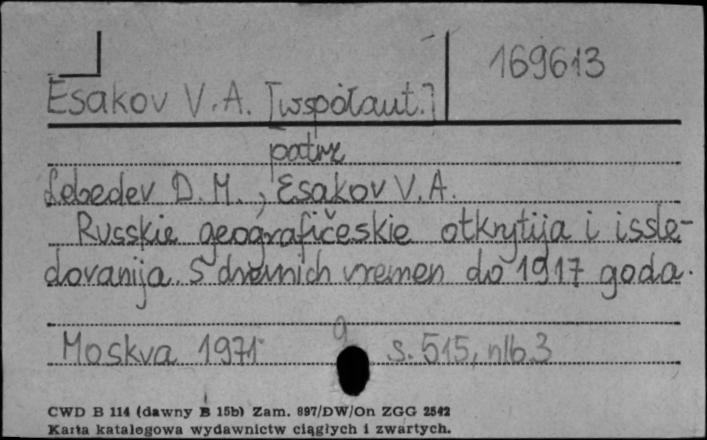 169613
Esakov V.A. [współaut.]
patrz
Lebedev D.M., Esakov V.A.
Russkie geografičeskie otkrytija i issle-
dovanija s drevnich vremen do 1917 goda.
Moskva 1971 s. 515, nlb 3
CWD B 114 (dawny B 15b) Zam. 897/DW/On ZGG 2542
Karta katalogowa wydawnictw ciągłych i zwartych.